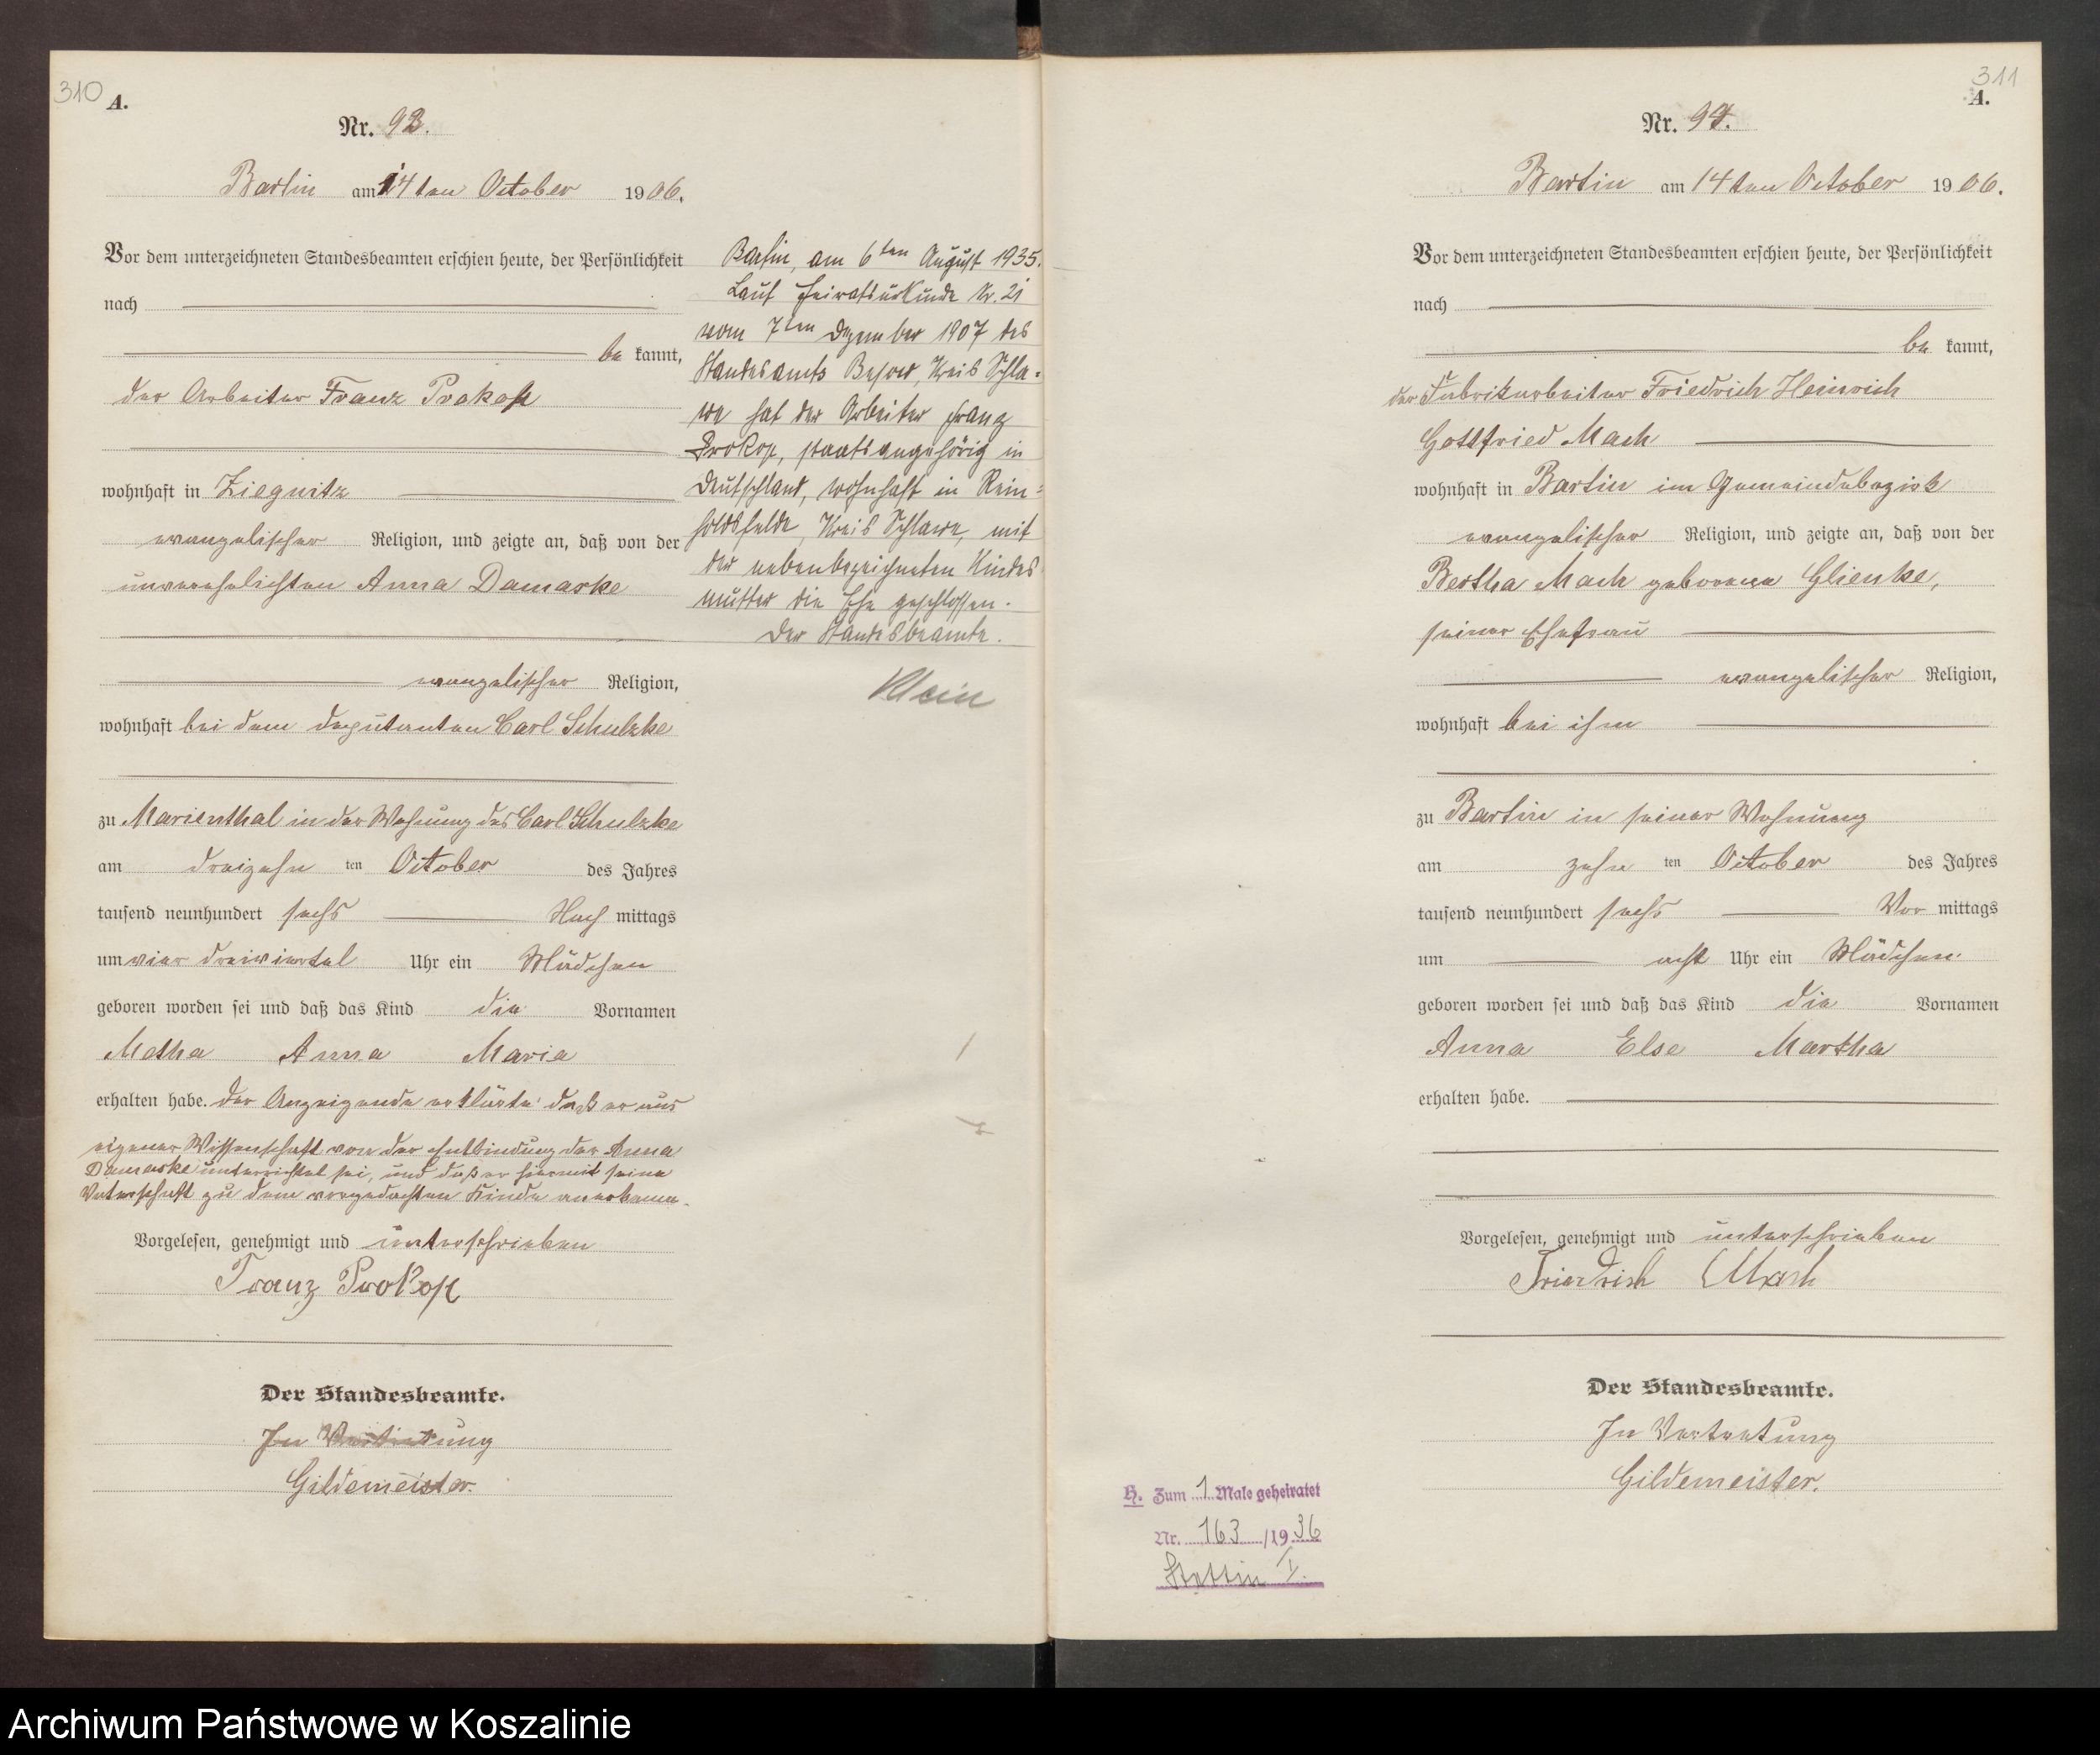 310
A.
Nr. 93.
Bartin am 14ten October 1906.
Vor dem unterzeichneten Standesbeamten erschien heute, der Persönlichkeit
nach
be kannt,
der Arbeiter Franz Prokop
wohnhaft in Ziegnitz
evangelischer Religion, und zeigte an, daß von der
unverehelichten Anna Damaske
evangelischer Religion,
wohnhaft bei dem Deputanten Carl Schulzke
zu Marienthal in der Wohnung des Carl Schulzke
am dreizehn ten October des Jahres
tausend neunhundert sechs Nach mittags
um vier dreiviertel Uhr ein Mädchen
geboren worden sei und daß das Kind die Vornamen
Metha Anna Maria
erhalten habe. Der Anzeigende erklärte daß er aus
eigener Wissenschaft von der Entbindung der Anna
Damaske unterrichtet sei, und daß er hiermit seine
Vaterschaft zu dem vorgedachten Kinde anerkenne.
Vorgelesen, genehmigt und unterschrieben
Franz Prokop
Der Standesbeamte.
In Vertretung
Gildemeister.
Bartin, am 6ten August 1935.
Laut Heiratsurkunde Nr. 21
vom 7ten Dezember 1907 des
Standesamts Besow, Kreis Schla-
we hat der Arbeiter Franz
Prokop, staatsangehörig in
Deutschland, wohnhaft in Rein=
holdsfelde, Kreis Schlawe, mit
der nebenbezeichneten Kindes
mutter die Ehe geschlossen.
Der Standesbeamte.
Klein
311
A.
Nr. 94.
Bartin am 14ten October 1906.
Vor dem unterzeichneten Standesbeamten erschien heute, der Persönlichkeit
nach
be kannt,
der Fabrikarbeiter Friedrich Heinrich
Gottfried Mach
wohnhaft in Bartin im Gemeindebezirk
evangelischer Religion, und zeigte an, daß von der
Bertha Mach geborene Glienke,
seiner Ehefrau
evangelischer Religion,
wohnhaft bei ihm
zu Bartin in seiner Wohnung
am zehn ten October des Jahres
tausend neunhundert sechs Vor mittags
um acht Uhr ein Mädchen
geboren worden sei und daß das Kind die Vornamen
Anna Else Martha
erhalten habe.
Vorgelesen, genehmigt und unterschrieben
Friedrich Mach
Der Standesbeamte.
In Vertretung
Gildemeister.
H. Zum 1 Male geheiratet
Nr. 163 /1936
Stettin I.
Archiwum Państwowe w Koszalinie